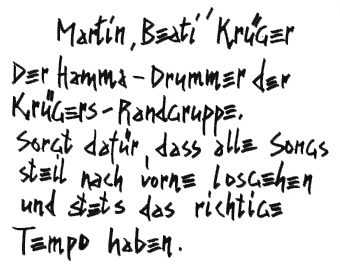 Martin „Beati“ Krüger
Der Hamma-Drummer der
Krügers-Randgruppe.
Sorgt dafür, dass alle Songs
steil nach vorne losgehen
und stets das richtige
Tempo haben.